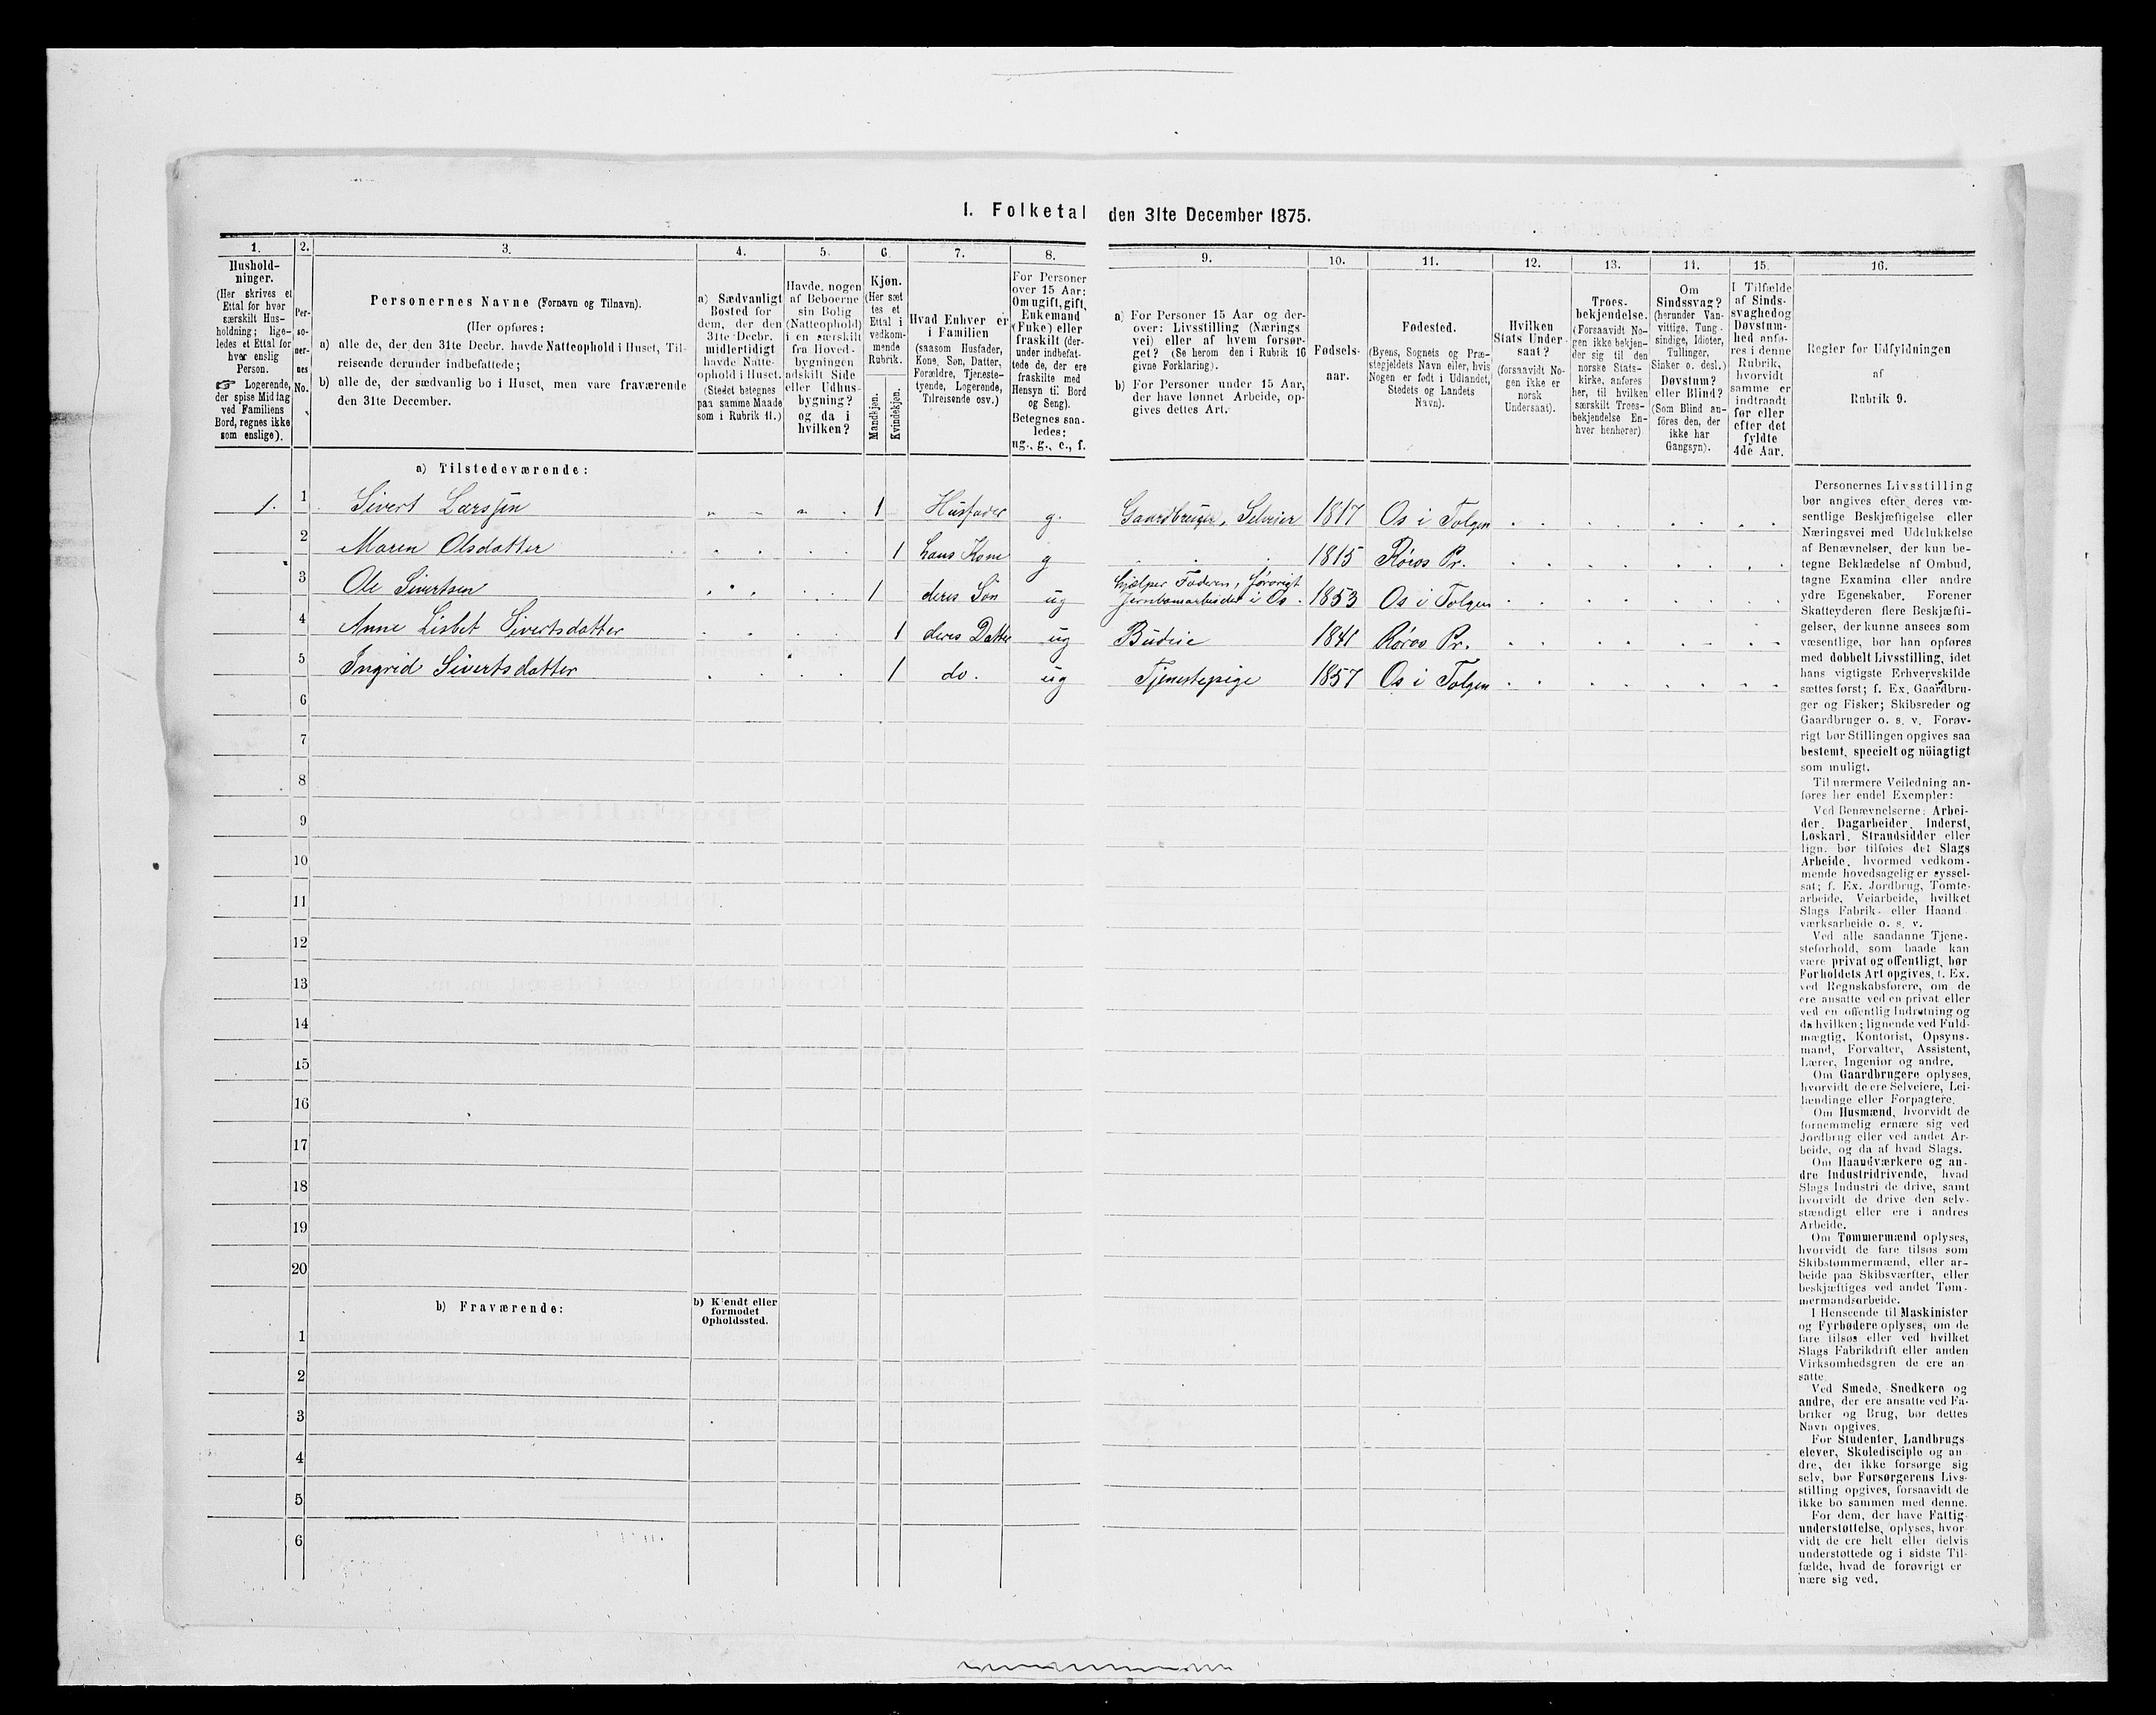 I. Folketal den 31te December 1875.
1. 2. 3. 4. 5. 6. 7. 8. 9. 10. 11. 12. 13. 14. 15. 16.
Hushold-
ninger.
(Her skrives et
Ettal for hver
særskilt Hus-
holdning; lige-
ledes et Ettal for
hver enslig
Person.
☞ Logerende,
der spise Middag
ved Familiens
Bord, regnes ikke
som enslige).
Per-
so-
ner-
nes
No.
Personernes Navne (Fornavn og Tilnavn).
(Her opføres:
a) alle de, der den 31te Decbr. havde Natteophold i Huset, Til-
reisende derunder indbefattede;
b) alle de, der sædvanlig bo i Huset, men vare fraværende
den 31te December.
a) Sædvanligt
Bosted for
dem, der den
31te Decbr.
midlertidigt
havde Natte-
ophold i Huset.
(Stedet betegnes
paa samme Maade
som i Rubrik 11.)
Havde nogen
af Beboerne
sin Bolig
(Natteophold)
i en særskilt
fra Hoved-
bygningen
adskilt Side
eller Udhus-
bygning?
og da i
hvilken?
Kjøn.
(Her sæt
tes et
Ettal i
vedkom-
mende
Rubrik.
Mandkjøn.
Kvindekjøn.
Hvad Enhver er
i Familien
(saasom Husfader,
Kone, Søn, Datter,
Forældre, Tjeneste-
tyende, Logerende,
Tilreisende osv.)
For Personer
over 15 Aar:
Om ugift, gift,
Enkemand
(Enke) eller
fraskilt (der-
under indbefat-
tede de, der ere
fraskilte med
Hensyn til Bord
og Seng).
Betegnes saa-
ledes:
ug., g., e., f.
a) For Personer 15 Aar og der-
over: Livsstilling (Nærings
vei) eller af hvem forsør-
get? (Se herom den i Rubrik 16
givne Forklaring).
b) For Personer under 15 Aar,
der have lønnet Arbeide, op-
gives dettes Art.
Fødsels-
aar.
Fødested.
(Byens, Sognets og Præ-
stegjeldets Navn eller, hvis
Nogen er født i Udlandet,
Stedets og Landets
Navn).
Hvilken
Stats Under
saat?
(forsaavidt No-
gen ikke er
norsk
Undersaat).
Troes-
bekjendelse.
(Forsaavidt No-
gen ikke bekjen-
der sig til den
norske Stats-
kirke, anføres
her, til hvilken
særskilt Troes-
bekjendelse En-
hver henhører)
Om
Sindssvag?
(herunder Van-
vittige, Tung-
sindige, Idioter,
Tullinger,
Sinker o. desl.)
Døvstum?
eller Blind?
(Som Blind an-
føres den, der
ikke har
Gangsyn).
I Tilfælde
af Sinds-
svaghed og
Døvstum-
hed anfø-
res i denne
Rubrik,
hvorvidt
samme er
indtraadt
før eller
efter det
fyldte
4de Aar.
Regler for Udfyldningen
af
Rubrik 9.
a) Tilstedeværende:
1. 1 Sivert Larssen 1 Husfader g. Gaardbruger, Selveier 1817 Os i Tolgen
2 Maren Olsdatter 1 hans Kone g 1815 Røros Pr.
3 Ole Sivertsen 1 deres Søn ug hjælper Faderen, forøvrigt
Jernbanearbeider i Os. 1853 Os i Tolgen
4 Anne Lisbet Sivertsdatter 1 deres Datter ug Budeie 1841 Røros Pr.
5 Ingrid Sivertsdatter 1 do. ug Tjenestepige 1857 Os i Tolgen
6
7
8
9
10
11
12
13
14
15
16
17
18
19
20
b) Fraværende:
b) Kjendt eller
formodet
Opholdssted.
1
2
3
4
5
6
Personernes Livsstilling
bør angives efter deres væ-
sentlige Beskjæftigelse eller
Næringsvei med Udelukkelse
af Benævnelser, der kun be-
tegne Beklædelse af Ombud,
tagne Examina eller andre
ydre Egenskaber. Forener
Skatteyderen flere Beskjæfti-
gelser, der kunne ansees som
væsentlige, bør han opføres
med dobbelt Livsstilling, idet
hans vigtigste Erhvervskilde
sættes først; f. Ex. Gaardbru-
ger og Fisker; Skibsreder og
Gaardbruger o. s. v. Forøv-
rigt bør Stillingen opgives saa
bestemt, specielt og nöiagtigt
som muligt.
Til nærmere Veiledning an-
føres her endel Exempler:
Ved Benævnelserne: Arbei-
der, Dagarbeider, Inderst,
Løskarl, Strandsidder eller
lign. bør tilføies det Slags
Arbeide, hvormed vedkom-
mende hovedsagelig er syssel-
sat; f. Ex. Jordbrug, Tomte-
arbeide, Veiarbeide, hvilket
Slags Fabrik- eller Haand
værksarbeide o. s. v.
Ved alle saadanne Tjene-
steforhold, som baade kan
være privat og offentligt, bør
Forholdets Art opgives, f. Ex.
ved Regnskabsførere, om de
ere ansatte ved en privat eller
ved en offentlig Indretning og
da hvilken; lignende ved Fuld-
mægtig, Kontorist, Opsyns-
mand, Forvalter, Assistent,
Lærer, Ingeniør og andre.
Om Gaardbrugere oplyses,
hvorvidt de ere Selveiere, Lei-
lændinge eller Forpagtere.
Om Husmænd, hvorvidt de
fornemmelig ernære sig ved
Jordbrug eller ved andet Ar-
beide, og da af hvad Slags.
Om Haandværkere og an-
dre Industridrivende, hvad
Slags Industri de drive, samt
hvorvidt de drive den selv-
stændigt eller ere i andres
Arbeide.
Om Tømmermænd oplyses,
hvorvidt de fare tilsøs som
Skibstømmermænd, eller ar-
beide paa Skibsværfter, eller
beskjæftiges ved andet Tøm-
mermandsarbeide.
I Henseende til Maskinister
og Fyrbødere oplyses, om de
fare tilsøs eller ved hvilket
Slags Fabrikdrift eller anden
Virksomhedsgren de ere an
satte.
Ved Smede, Snedkere og
andre, der ere ansatte ved Fa-
briker og Brug, bør dettes
Navn opgives.
For Studenter, Landbrugs
elever, Skoledisciple og an
dre, der ikke forsørge sig
selv, bør Forsørgerens Livs-
stilling opgives, forsaavidt de
ikke bo sammen med denne.
For dem, der have Fattig-
understøttelse, oplyses, hvor
vidt de ere helt eller delvis
understøttede og i sidste Til-
fælde, hvad de forøvrigt er
nære sig ved.